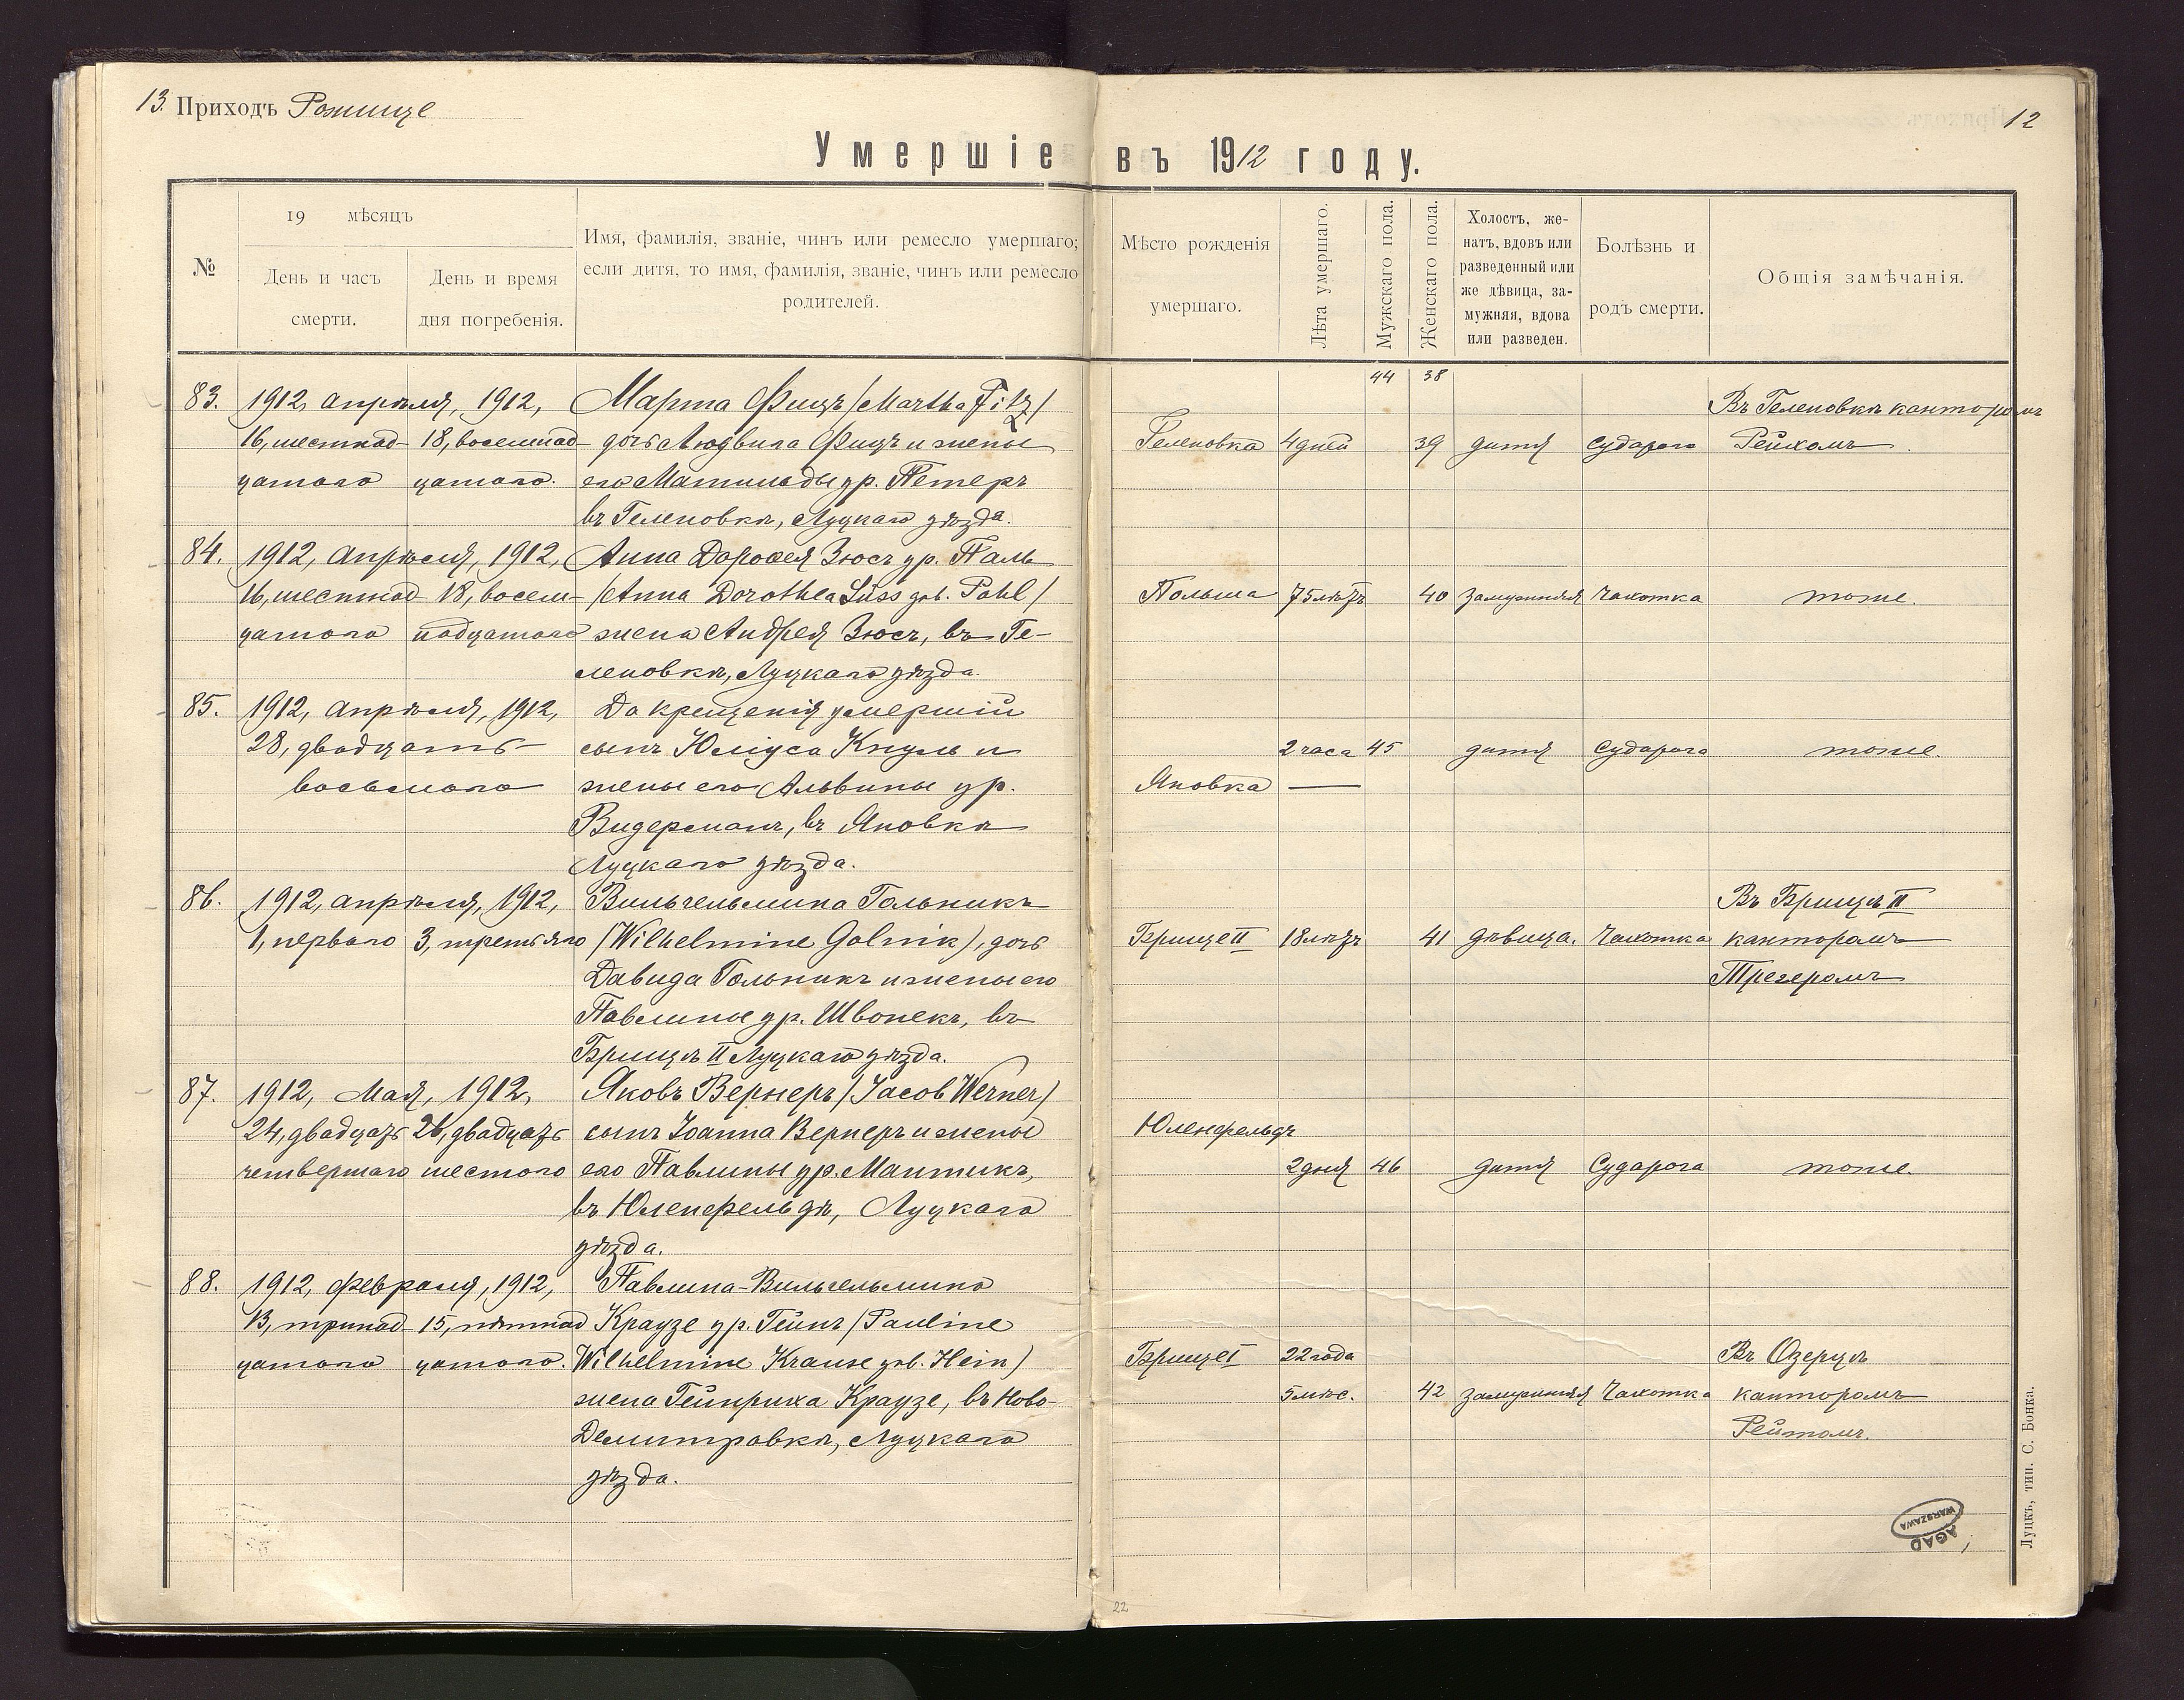 13. Приходъ Рожище
12
Умершіе въ 1912 году.
№
19 мѣсяцъ
День и часъ смерти.
День и время дня погребенія.
Имя, фамилія, званіе, чинъ или ремесло умершаго;
если дитя, то имя, фамилія, званіе, чинъ или ремесло
родителей.
Мѣсто рожденія
умершаго.
Лѣта умершаго.
Мужскаго пола.
Женскаго пола.
Холостъ, же-
натъ, вдовъ или
разведенный или
же дѣвица, за-
мужняя, вдова
или разведен.
Болѣзнь и
родъ смерти.
Общія замѣчанія.
44 38
83. 1912, апрѣля, 1912, Марта Фицъ /Martha Fitz/ Въ Геленовкѣ канторомъ
16, шестнад- 18, восемнад- дочь Людвига Фицъ и жены Геленовка 4 дней 39 дитя судорога Рейхомъ.
цатого цатого. его Матильды ур. Петеръ
въ Геленовкѣ, Луцкаго уѣзда.
84. 1912, апрѣля, 1912, Анна Доровея Зюсъ ур. Паль
16, шестнад- 18, восем- /Anna Dorothea Süss geb. Pahl/ Польша 75 лѣтъ 40 замужняя чахотка тоже.
цатого надцатого жена Андрея Зюсъ, въ Ге-
леновкѣ, Луцкаго уѣзда.
85. 1912, апрѣля, 1912, До крещенія умершій
28, двадцать сынъ Юліуса Кнуль и 2 часа 45 дитя судорога тоже.
восьмого жены его Альвины ур. Яновка —
Видерманъ, въ Яновкѣ
Луцкаго уѣзда.
86. 1912, апрѣля, 1912, Вильгельмина Гольникъ Въ Брищѣ II
1, перваго 3, третьяго /Wilhelmine Golnik), дочь Брище II 18 лѣтъ 41 дѣвица. чахотка канторомъ
Давида Гольникъ и жены его Трегеромъ
Павлины ур. Швонекъ, въ
Брищѣ II Луцкаго уѣзда.
87. 1912, Мая, 1912, Яковъ Вернеръ /Jacob Werner/
24, двадцать 26, двадцать сынъ Іоанна Вернеръ и жены Юленфельдъ
четвертаго шестого его Павлины ур. Мантикъ, 2 дня 46 дитя Судорога тоже.
въ Юленфельдѣ, Луцкаго
уѣзда.
88. 1912, февраля, 1912, Павлина-Вильгельмина
13, тринад- 15, пятнад Краузе ур. Гейнъ /Pauline
цатого цатого. Wilhelmine Krause geb. Hein) Брище I 22 года Въ Озерцѣ
жена Гейнриха Краузе, въ Ново- 5 мѣс. 42 замужняя чахотка канторомъ
Демитровкѣ, Луцкаго Рейтомъ.
уѣзда.
Луцкъ, тип. С. Бонка.
AGAD
WARSZAWA
22